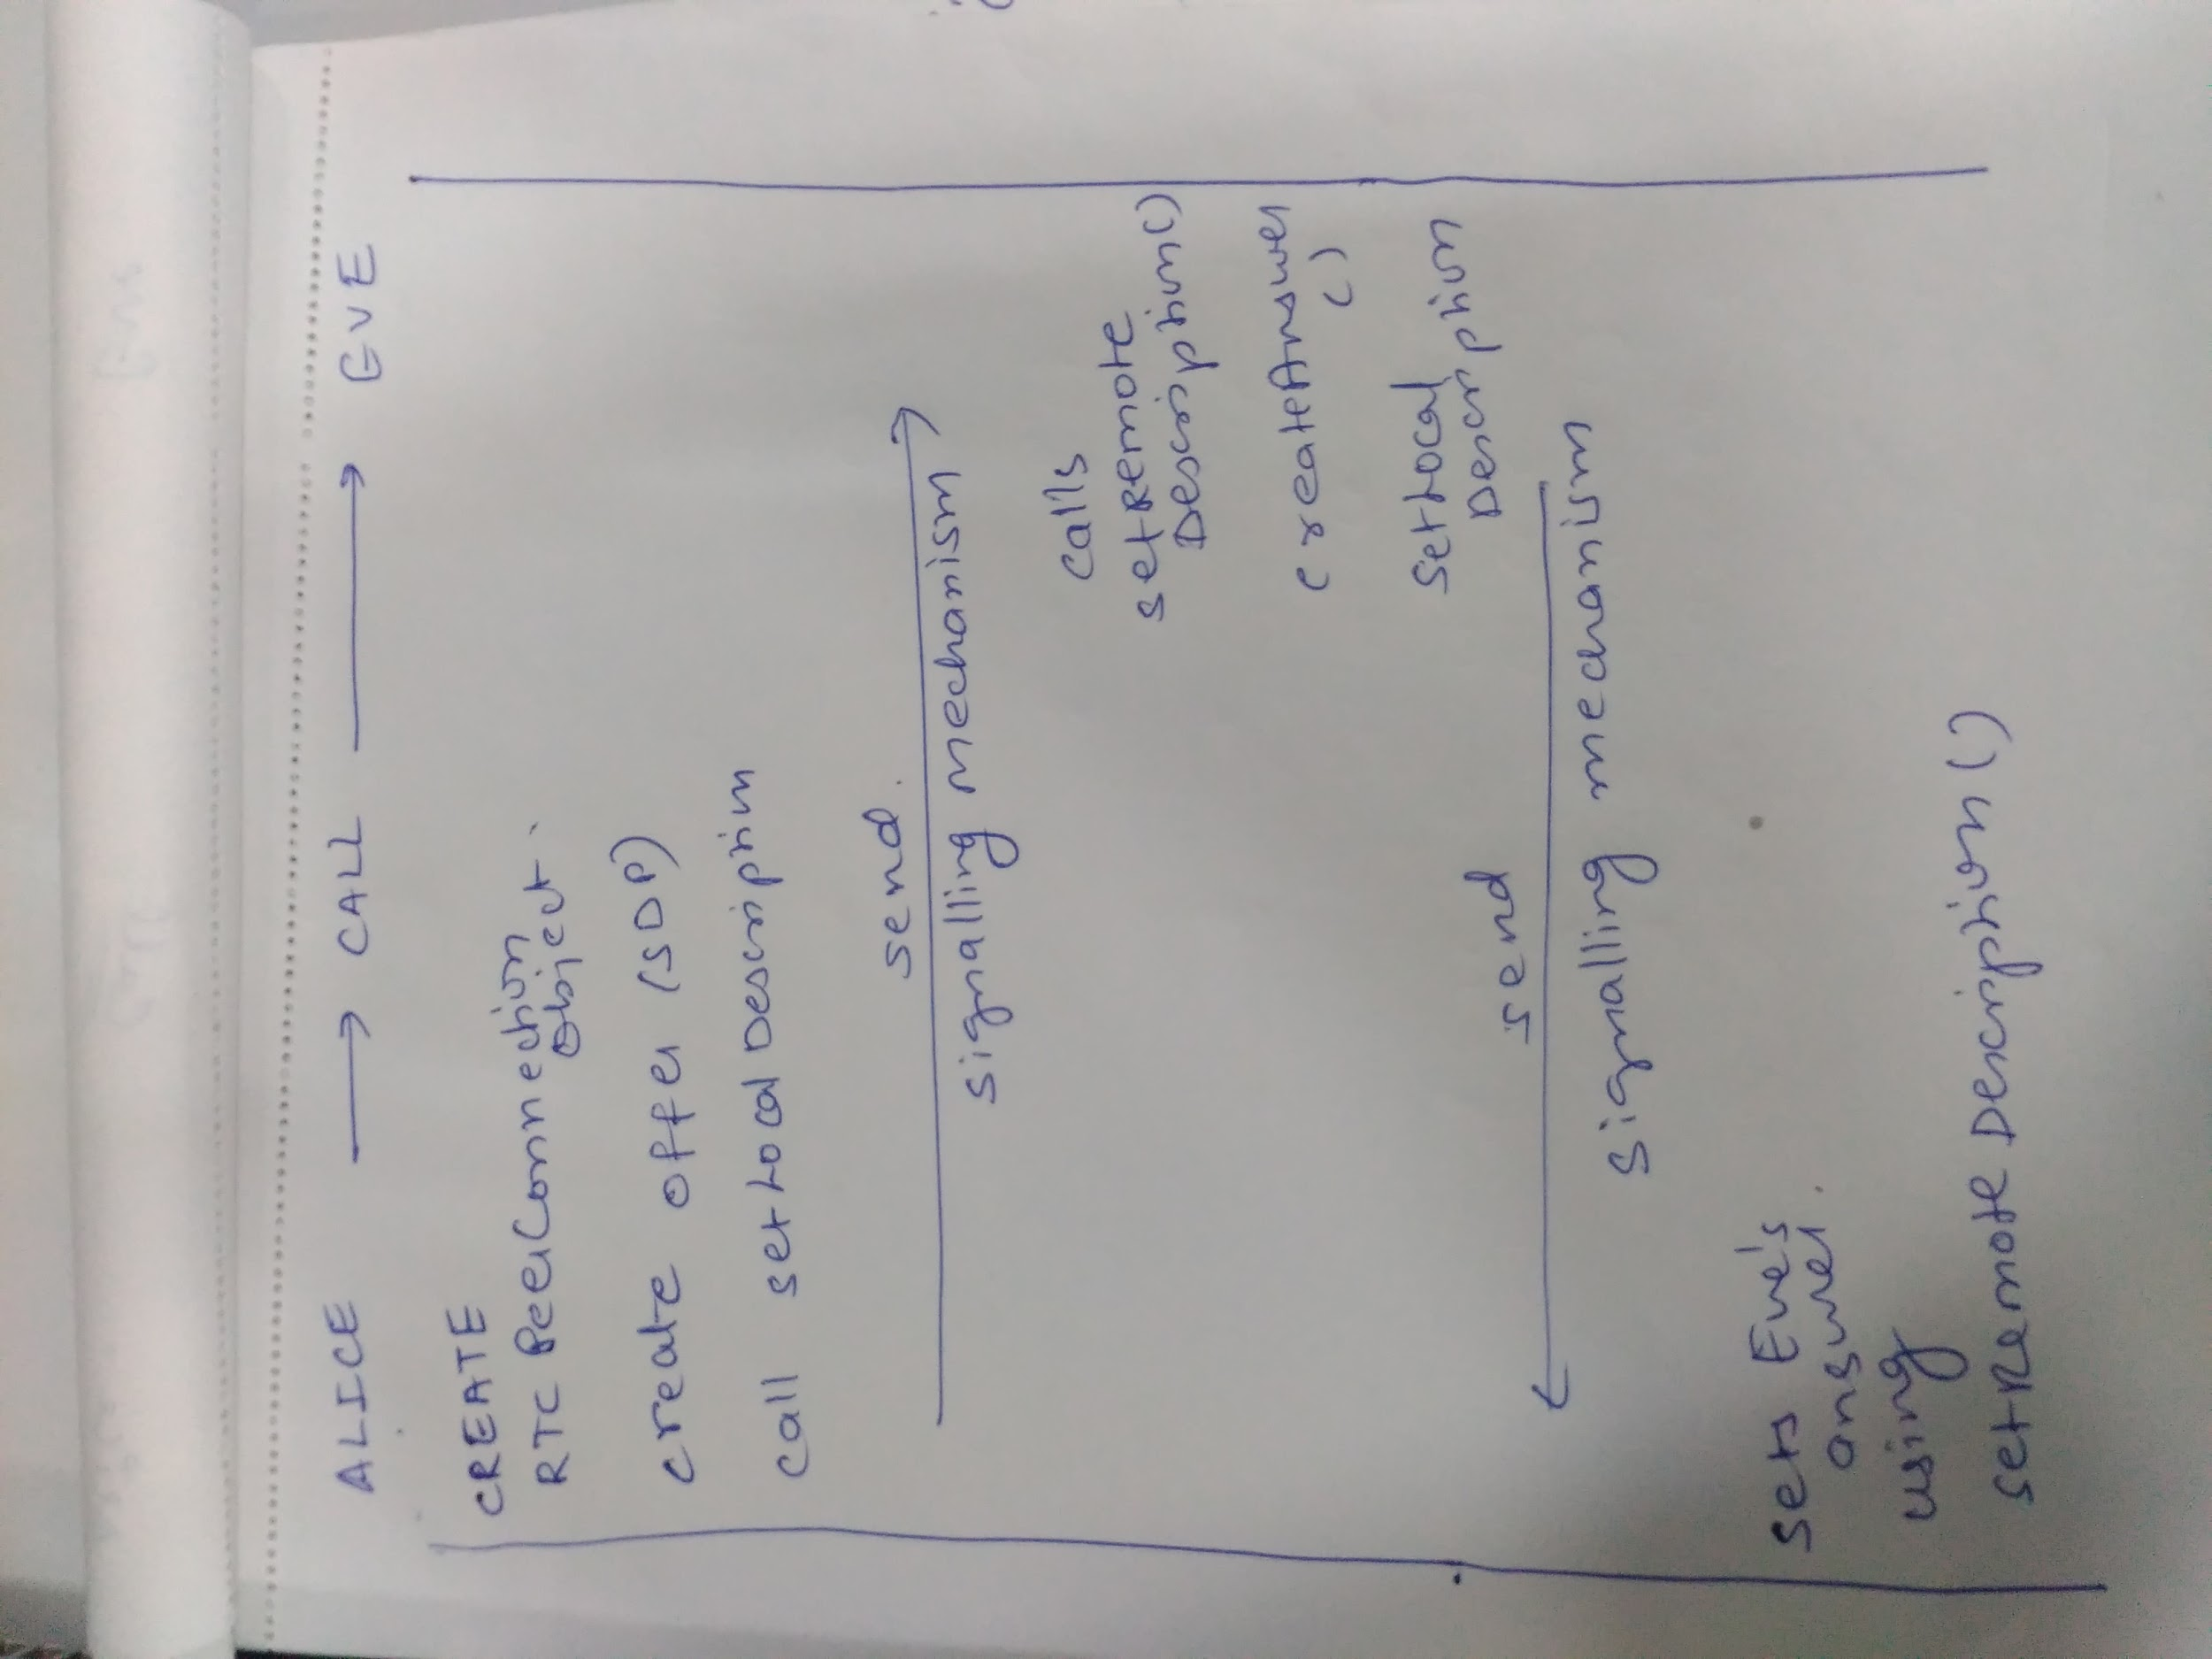 ALICE → CALL → EVE
CREATE
RTC PeerConnection
Object.
create offer (SDP)
call setLocal Description
send.
signalling mechanism
calls
setRemote
Description()
createAnswer
()
setLocal
Description
send
signalling mechanism
sets Eve's
answer.
using
setRemote Description()